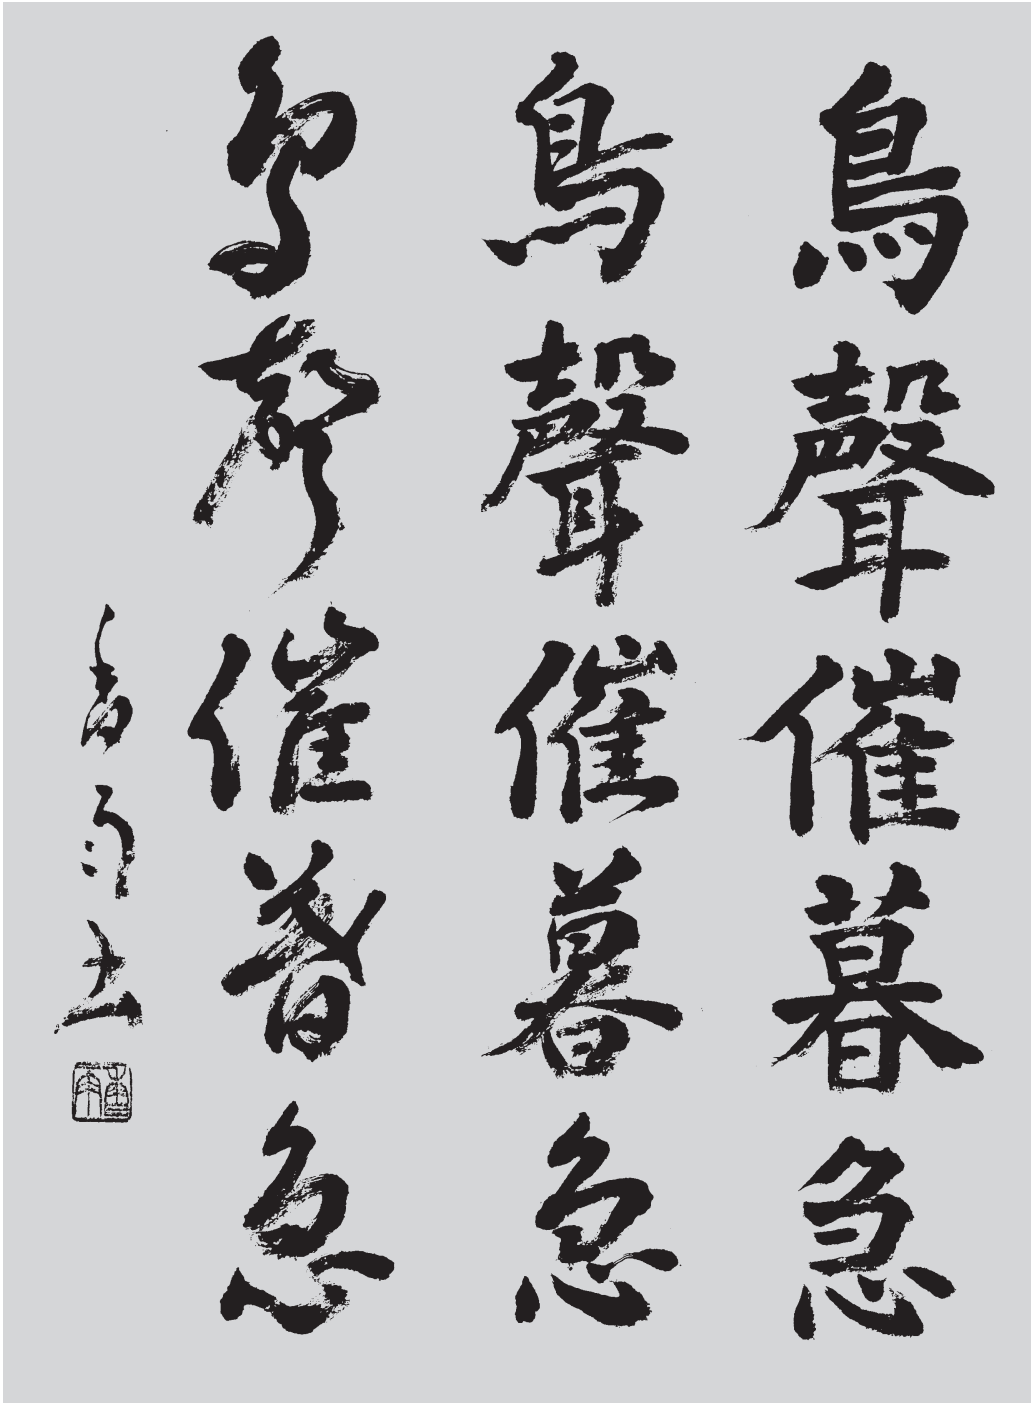 鳥聲催暮急
鳥聲催暮急
鳥聲催暮急
香雨土